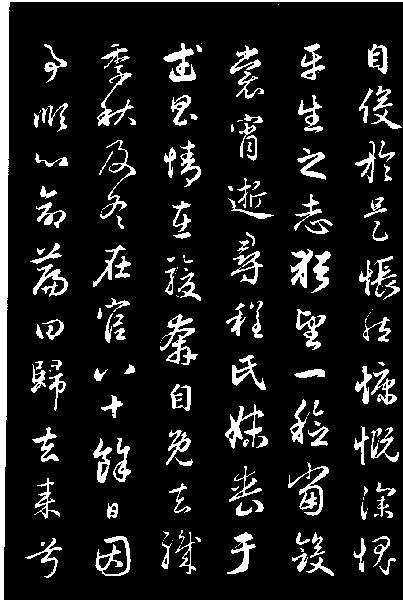 自役於是悵然慷慨深愧
平生之志猶望一稔當斂
裳宵逝尋程氏妹喪于
武昌情在駿奔自免去職
季秋及冬在官八十餘日因
事順心命篇曰歸去来兮